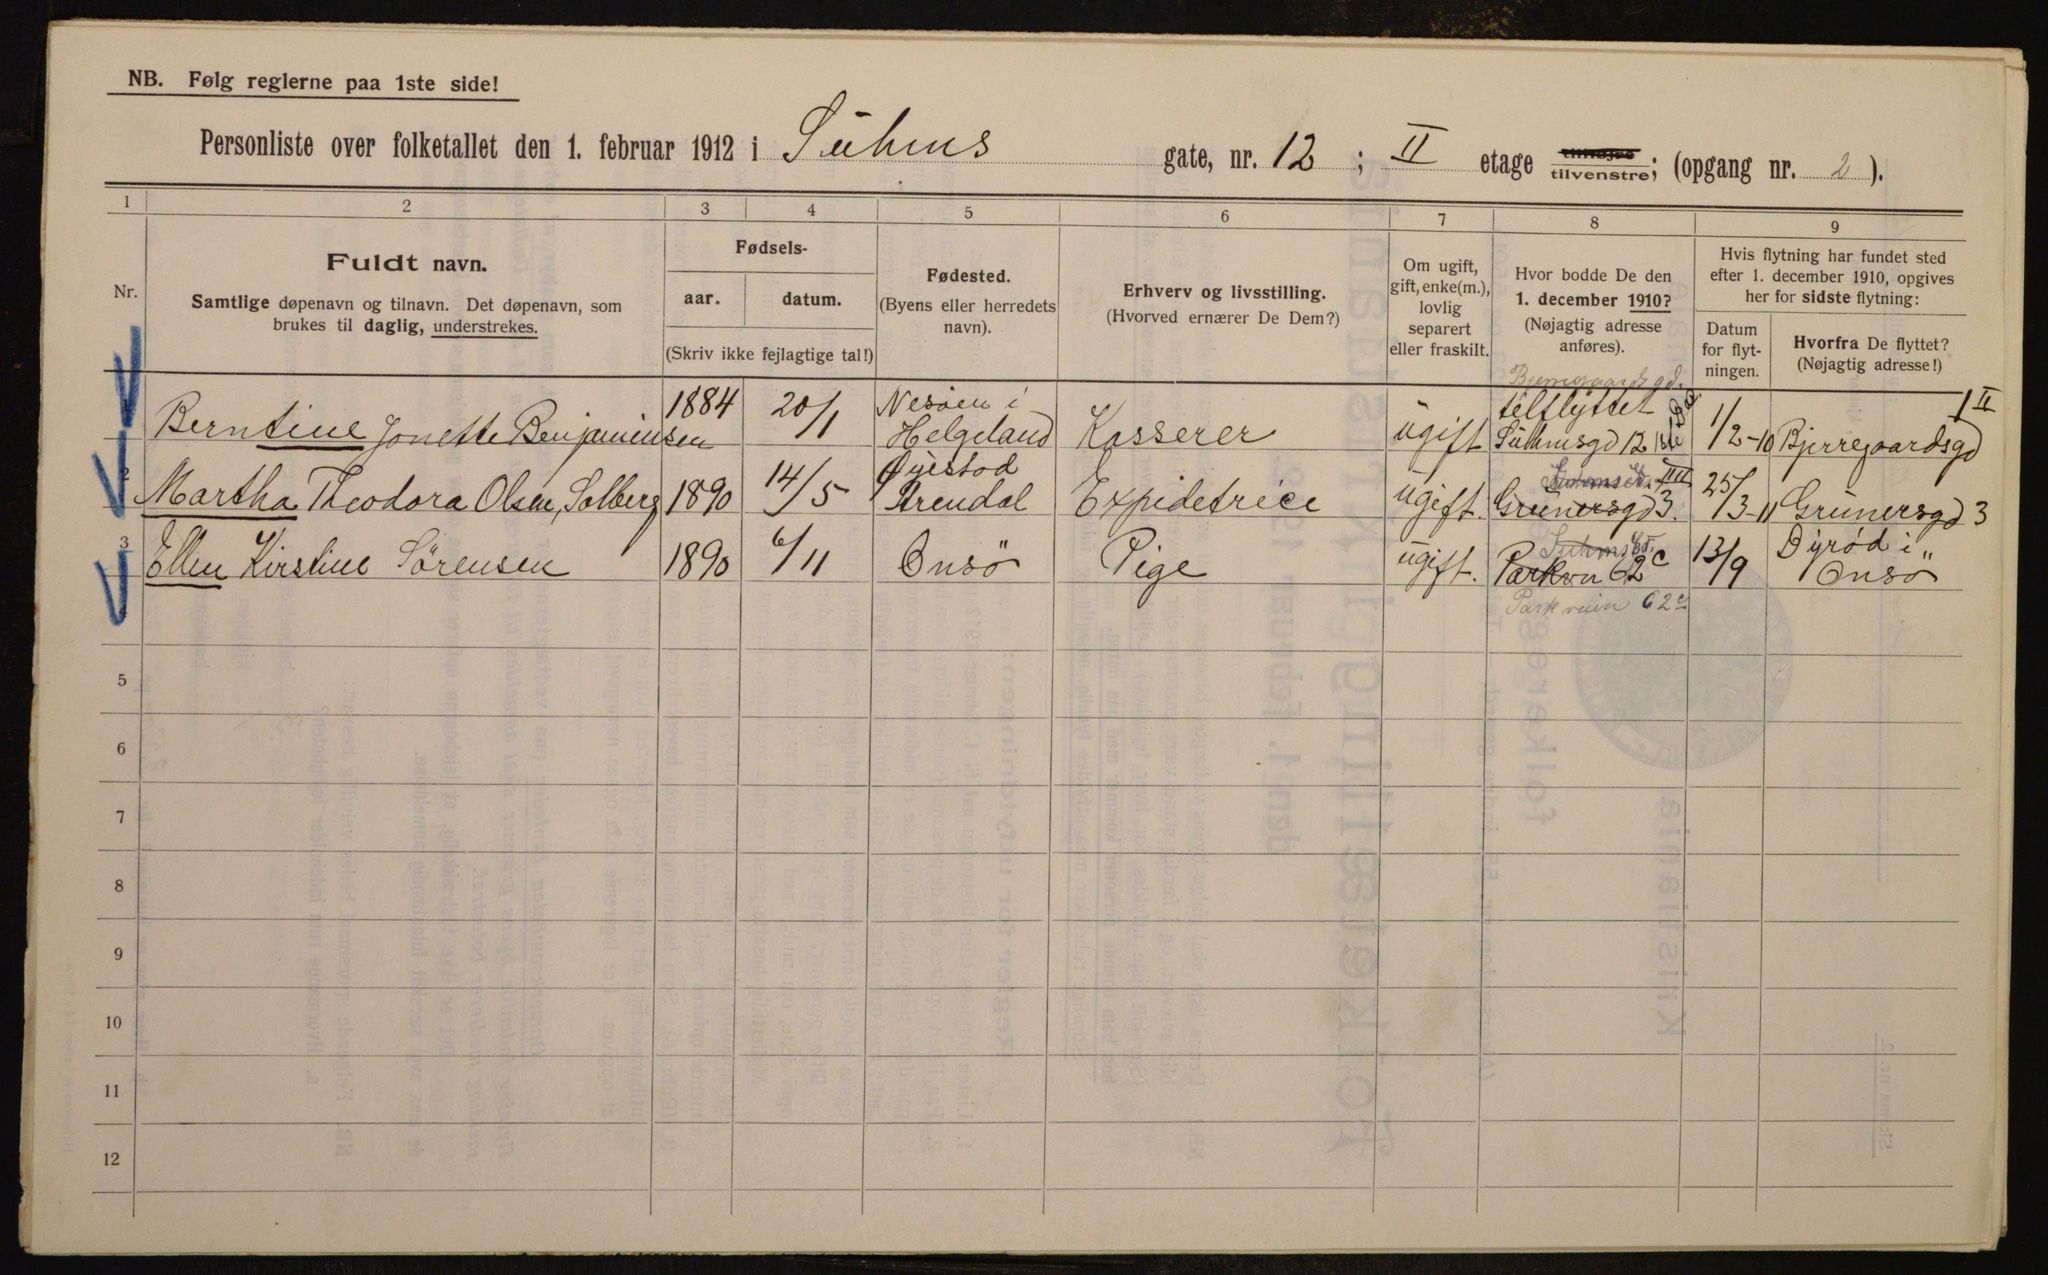 NB. Følg reglerne paa 1ste side!
Personliste over folketallet den 1. februar 1912 i Suhms gate, nr. 12 ; II etage tilhøjre tilvenstre; (opgang nr. 2 ).
1 2 3 4 5 6 7 8 9
Nr.
Fuldt navn.
Samtlige døpenavn og tilnavn. Det døpenavn, som
brukes til daglig, understrekes.
Fødsels-
aar. datum.
(Skriv ikke fejlagtige tal!)
Fødested.
(Byens eller herredets
navn).
Erhverv og livsstilling.
(Hvorved ernærer De Dem?)
Om ugift,
gift, enke(m.),
lovlig
separert
eller fraskilt.
Hvor bodde De den
1. december 1910?
(Nøjagtig adresse
anføres).
Hvis flytning har fundet sted
efter 1. december 1910, opgives
her for sidste flytning:
Datum
for flyt-
ningen.
Hvorfra De flyttet?
(Nøjagtig adresse!)
Bjerregaardsgd.
Berntine Jonette Benjaminsen 1884 20/1 Nesøen i Helgeland Kasserer ugift tilflyttet Suhmsgd 12 1/2-10 Bjerregaardsgd 1 II
2 Martha Theodora Olsen, Solberg 1890 14/5 Øyestad Arendal Expidetrice ugift. Suhmsgd. III Grünersgd 3. 25/3-11 Grünersgd 3
3 Ellen Kirstine Sørensen 1890 6/11 Onsö Pige ugift. Suhmsgd. Parkvn 62c 13/9 Dyrød i Onsö
4 Parkveien 62c
5
6
7
8
9
10
11
12